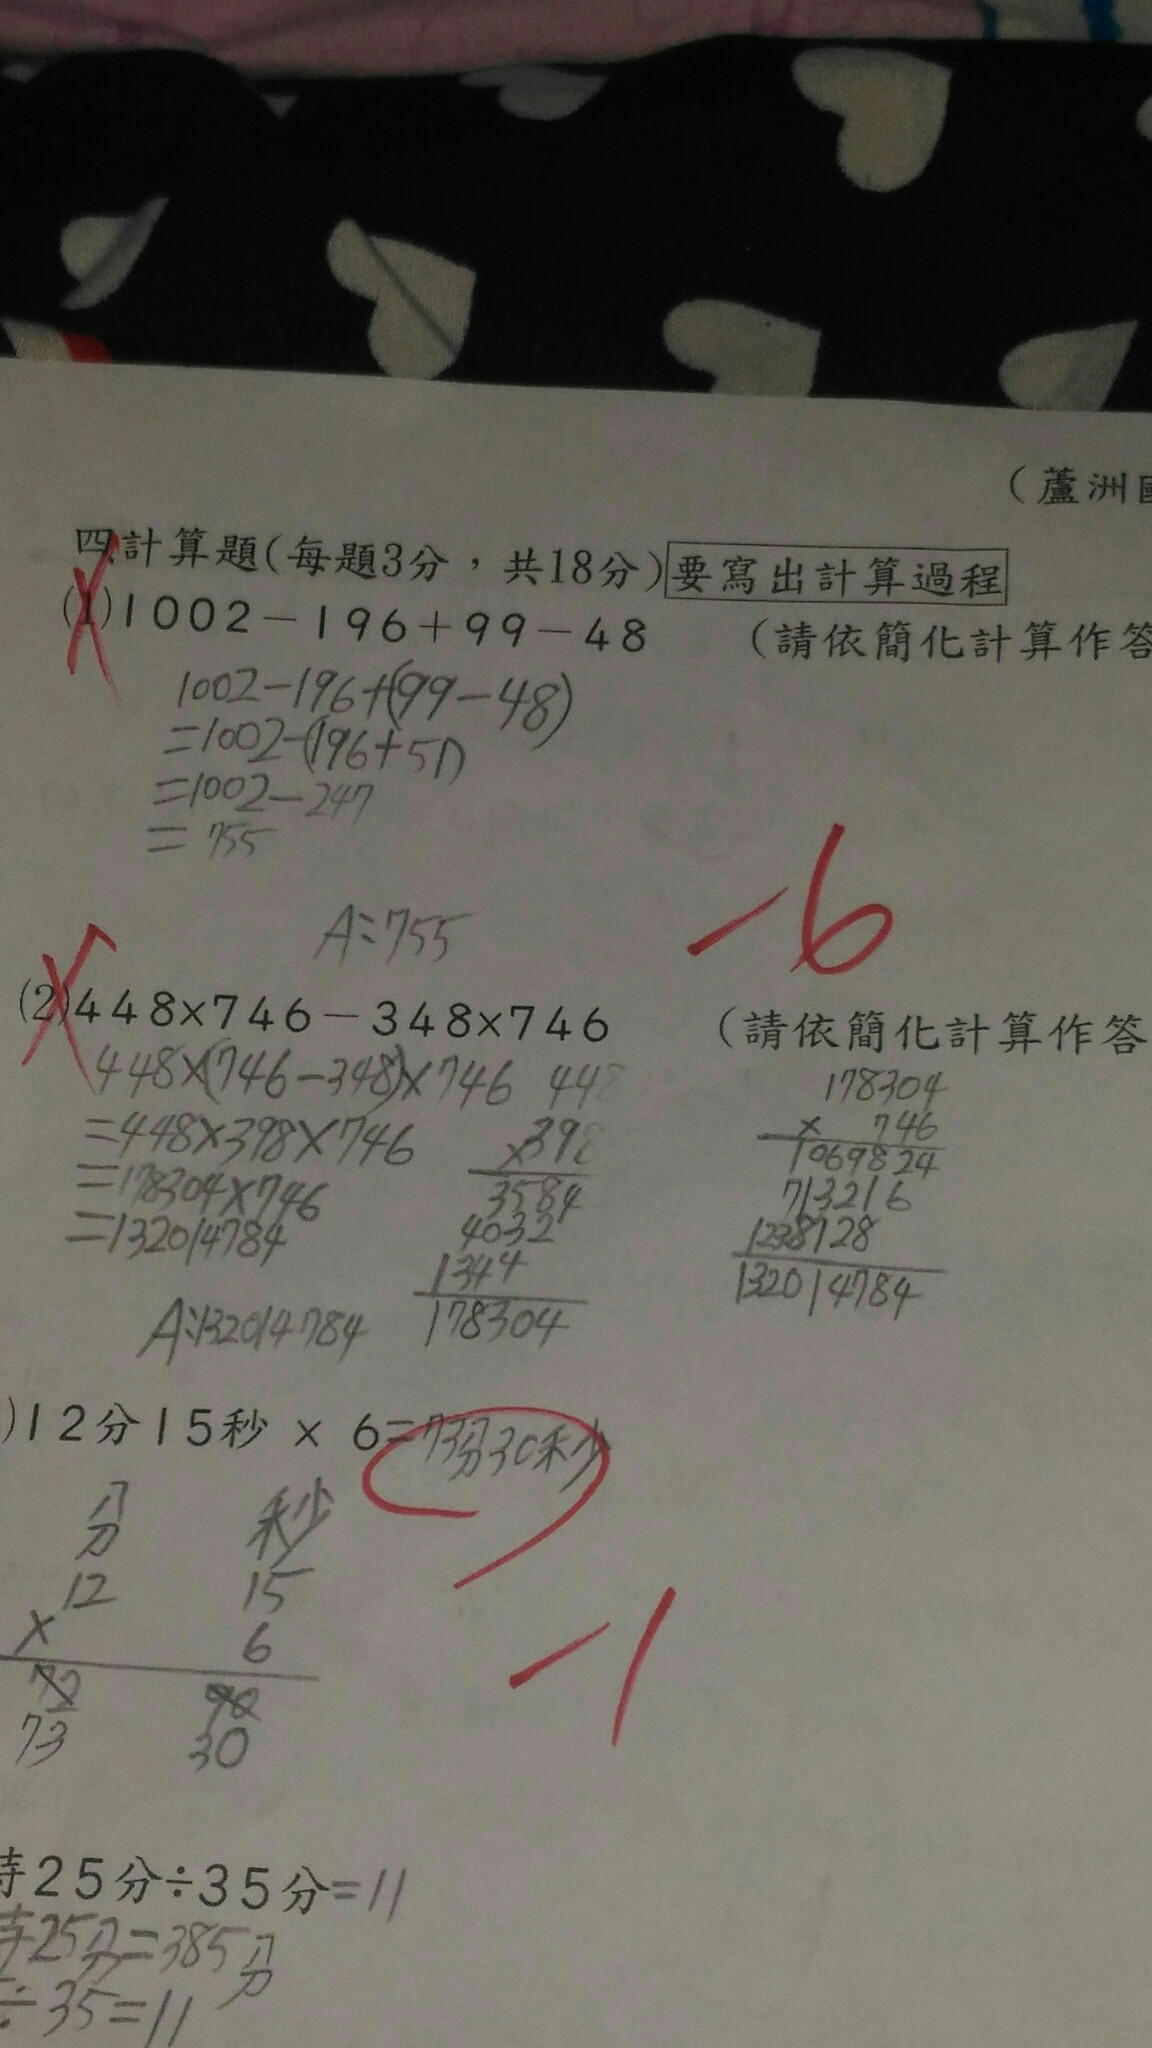 （蘆洲
四計算題(每題3分，共18分)要寫出計算過程
(1)1002－196＋99－48　（請依簡化計算作答
1002-196+(99-48)
=1002-(196+51)
=1002-247
=755
A:755
-6
(2)448×746－348×746　（請依簡化計算作答
448×(746-348)×746
=448×398×746
=178304×746
=132014784
A:132014784
448
×398
3584
4032
1344
178304
178304
× 746
1069824
713216
1238128
132014784
)12分15秒 × 6=73分30秒
分 秒
12 15
× 6
72 90
73 30
-1
時25分÷35分=11
時25分=385分
÷35=11